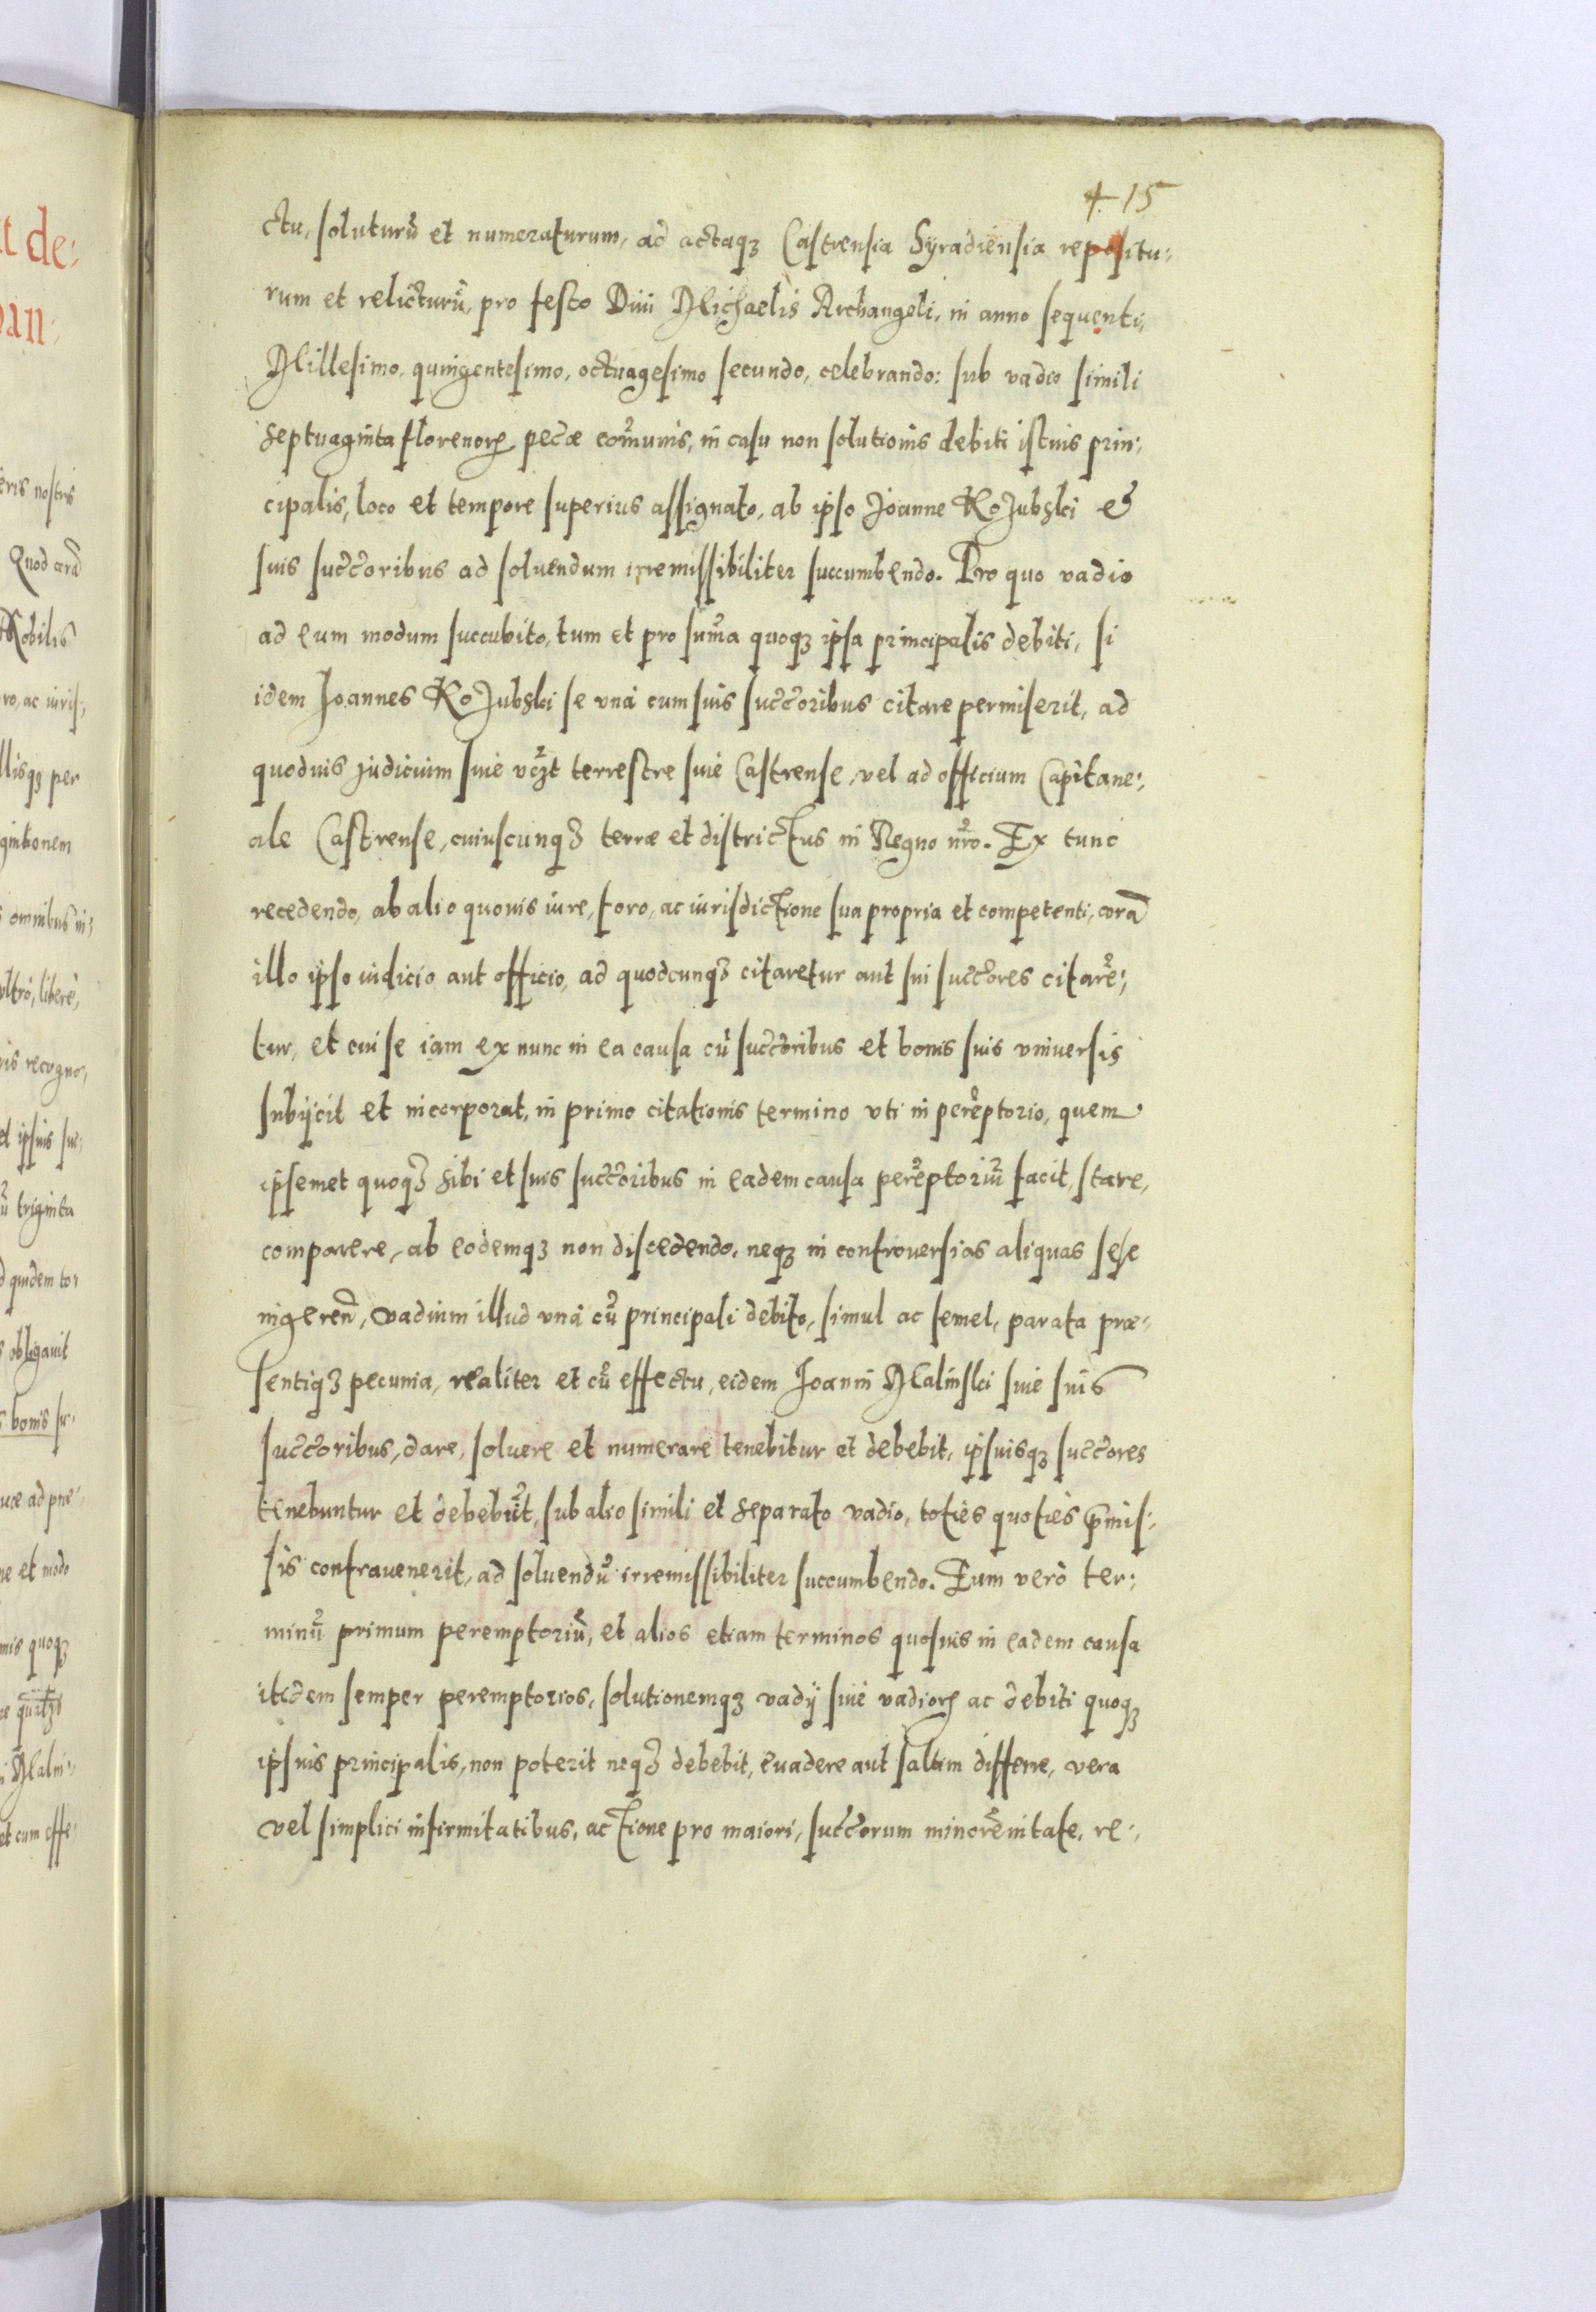 4. 15
ctu, soluturũ et numeraturum, ad actaqꝫ Castrensia Syradiensia repositu:
rum et relicturũ, pro festo Diui Michaelis Archangeli, in anno sequenti,
Millesimo, quingentesimo, octuagesimo secundo, celebrando: sub vadio simili
septuaginta florenorꝝ pecæ com̃unis, in casu non solutionis debiti istius prin:
cipalis, loco et tempore superius assignato, ab ipso Joanne Rozubski &
suis succ̃oribus ad soluendum irremissibiliter succumbendo. Pro quo vadio
ad eum modum succubito, tum et pro sum̃a quoqꝫ ipsa principalis debiti, si
idem Joannes Rozubski se unà cum suis succ̃oribus citare permiserit, ad
quoduis judicium siuè vcꝫt terrestre siuè Castrense, vel ad officium Capitane:
ale Castrense, cuiuscunqꝫ terræ et districtus in Regno nr̃o. Ex tunc
recedendo, ab alio quouis iure, foro, ac iurisdictione sua propria et competenti, corã
illo ipso iudicio aut officio, ad quodcunqꝫ citaretur aut sui succ̃ores citarẽ:
tur, et cui se iam ex nunc in ea causa cũ succ̃oribus et bonis suis vniuersis
subijcit et incorporat, in primo citationis termino vti in perẽptorio, quem
ipsemet quoqꝫ sibi et suis succ̃oribus in eadem causa perẽptoriũ facit, stare,
comparere, ab eodemqꝫ non discedendo, neqꝫ in controuersias aliquas sese
ingeren̄, vadium illud vnà cũ principali debito, simul ac semel, parata præ:
sentiqꝫ pecunia, realiter et cũ effectu, eidem Joanni Malinski siue suis
succ̃oribus, dare, soluere et numerare tenebitur et debebit, ipsiusqꝫ succ̃ores
tenebuntur et debebũt, sub alio simili et separato vadio, totiès quotiès p̃mis:
sis contrauenerit, ad soluendũ irremissibiliter succumbendo. Eum verò ter:
minũ primum peremptoriũ, et alios etiam terminos quosuis in eadem causa
itidem semper peremptorios, solutionemqꝫ vadij siuè vadiorꝝ ac debiti quoqꝫ
ipsius principalis, non poterit neqꝫ debebit, euadere aut saltim differre, vera
vel simplici infirmitatibus, actione pro maiori, succ̃orum minorẽnitate, re: